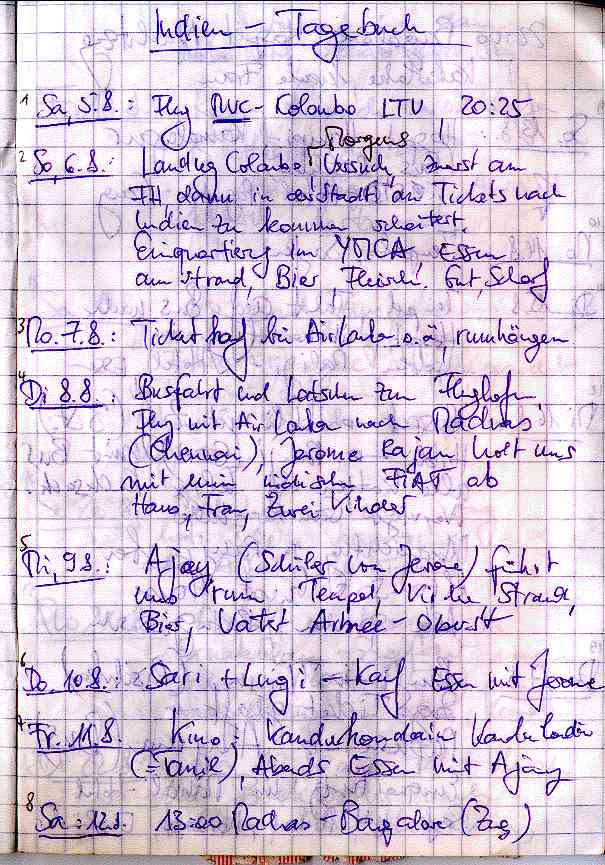 Indien - Tagebuch
1 Sa, 5.8.: Flug MUC - Kolombo LTU, 20:25
Morgens
2 So, 6.8.: Landug Colombo, Versuch, zuerst am
FH dann in der Stadt an Tickets nach
Indien zu kommen scheitert.
Einquartierg im YMCA Essen
am Strand, Bier, Fleisch. Gut, Scharf
3 Mo. 7.8.: Ticketkauf bei AirLanka o.ä, rumhängen
4 Di 8.8.: Busfahrt und Latschen zum Flughafen,
Flug mit Air Lanka nach Madras
(Chennai), Jerome Rajan holt uns
mit seinem indischen FIAT ab
Haus, Frau, Zwei Kinder
5 Mi, 9.8.: Ajay (Schüler von Jerome) führt
uns rum Tempel, Kirche Strand,
Bier, Vater Armee-Oberst
6 Do. 10.8.: Sari + Lungi - Kauf Essen mit Jerome
7 Fr. 11.8. Kino: Kandukondain Kandukondain
(= Tamil), Abends Essen mit Ajay
8 Sa: 12.8. 13:00 Madras - Bangalore (Zug)